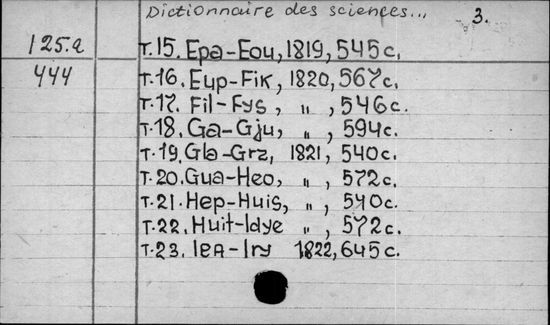 Dictionnaire des sciences... 3.
125.a т.15. Epa-Eou, 1819, 545 с.
444 т.16. Eup-Fik, 1820, 567 с.
т.17. Fil-Fys, " , 546 с.
т.18. Ga-Gju, " , 594 с.
т.19. Gla-Grz, 1821, 540 с.
т.20. Gua-Heo, " , 572 с.
т.21. Hep-Huis, " , 540 с.
т.22. Huit-Idye " , 572 с.
т.23. Iea-Iry 1822, 645 с.